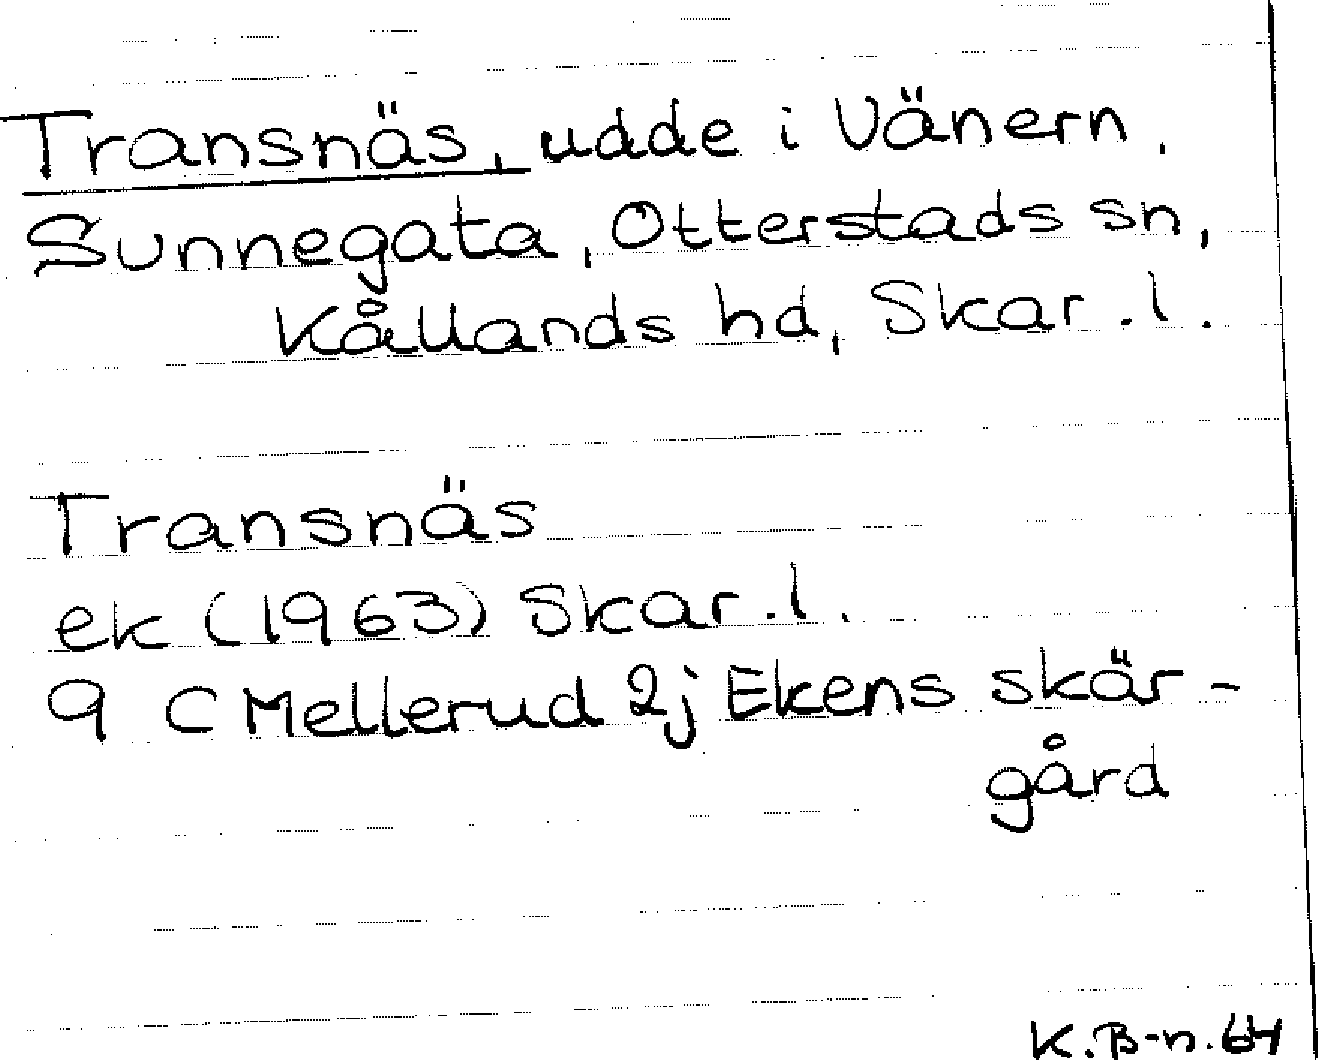 Transnäs, udde i Vänern.
Sunnegata, Otterstads sn,
Kållands hd, Skar.l.
Transnäs
ek (1963) Skar.l.
9 C Mellerud 2j Ekens skär-
gård
K.B-n.64